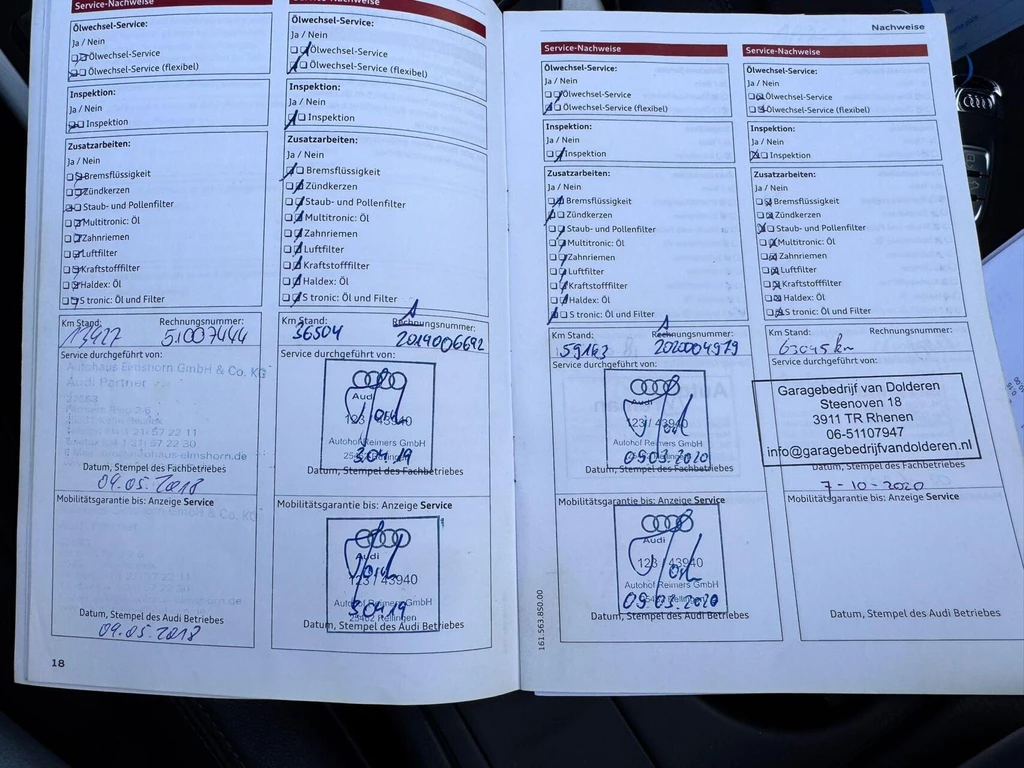 Service-Nachweise
Ölwechsel-Service:
Ja / Nein
Ölwechsel-Service
Ölwechsel-Service (flexibel)
Inspektion:
Ja / Nein
Inspektion
Zusatzarbeiten:
Ja / Nein
Bremsflüssigkeit
Zündkerzen
Staub- und Pollenfilter
Multitronic: Öl
Zahnriemen
Luftfilter
Kraftstofffilter
Haldex: Öl
S tronic: Öl und Filter
Km Stand: Rechnungsnummer:
13927 51007444
Service durchgeführt von:
Autohaus Elmshorn GmbH & Co. KG
Audi Partner
Datum, Stempel des Fachbetriebes
09.05.2018
Mobilitätsgarantie bis: Anzeige Service
Datum, Stempel des Audi Betriebes
09.05.2018
18
Service-Nachweise
Ölwechsel-Service:
Ja / Nein
Ölwechsel-Service
Ölwechsel-Service (flexibel)
Inspektion:
Ja / Nein
Inspektion
Zusatzarbeiten:
Ja / Nein
Bremsflüssigkeit
Zündkerzen
Staub- und Pollenfilter
Multitronic: Öl
Zahnriemen
Luftfilter
Kraftstofffilter
Haldex: Öl
S tronic: Öl und Filter
Km Stand: Rechnungsnummer:
36504 2019006692
Service durchgeführt von:
Audi
123 / 43940
Autohof Reimers GmbH
25462 Rellingen
3.04.19
Datum, Stempel des Fachbetriebes
Mobilitätsgarantie bis: Anzeige Service
Audi
123 / 43940
Autohof Reimers GmbH
3.04.19
25462 Rellingen
Datum, Stempel des Audi Betriebes
Nachweise
Service-Nachweise
Ölwechsel-Service:
Ja / Nein
Ölwechsel-Service
Ölwechsel-Service (flexibel)
Inspektion:
Ja / Nein
Inspektion
Zusatzarbeiten:
Ja / Nein
Bremsflüssigkeit
Zündkerzen
Staub- und Pollenfilter
Multitronic: Öl
Zahnriemen
Luftfilter
Kraftstofffilter
Haldex: Öl
S tronic: Öl und Filter
Km Stand: Rechnungsnummer:
59163 2020004979
Service durchgeführt von:
Audi
123 / 43940
Autohof Reimers GmbH
09.03.2020
Datum, Stempel des Fachbetriebes
Mobilitätsgarantie bis: Anzeige Service
Audi
123 / 43940
Autohof Reimers GmbH
09.03.2020
Datum, Stempel des Audi Betriebes
161.563.850.00
Service-Nachweise
Ölwechsel-Service:
Ja / Nein
Ölwechsel-Service
Ölwechsel-Service (flexibel)
Inspektion:
Ja / Nein
Inspektion
Zusatzarbeiten:
Ja / Nein
Bremsflüssigkeit
Zündkerzen
Staub- und Pollenfilter
Multitronic: Öl
Zahnriemen
Luftfilter
Kraftstofffilter
Haldex: Öl
S tronic: Öl und Filter
Km Stand: Rechnungsnummer:
63045 km
Service durchgeführt von:
Garagebedrijf van Dolderen
Steenoven 18
3911 TR Rhenen
06-51107947
info@garagebedrijfvandolderen.nl
Datum, Stempel des Fachbetriebes
7-10-2020
Mobilitätsgarantie bis: Anzeige Service
Datum, Stempel des Audi Betriebes